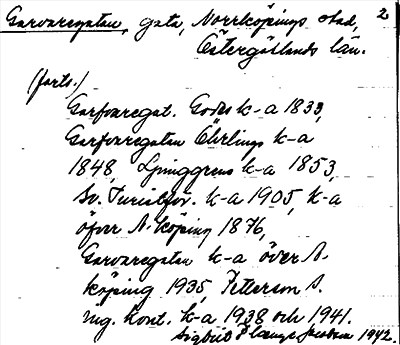 Garvaregatan, gata, Norrköpings stad, 2
Östergötlands län.
(forts.)
Garfvaregat. Godes k-a 1833,
Garfvaregatan Öhrlings k-a
1848, Ljunggrens k-a 1853,
Sv. Turistför. k-a 1905, k-a
öfver N.köping 1876,
Garvaregatan k-a över N.
köping 1935, Petterson s.
ing. kont. k-a 1938 och 1941.
Sigbrit Plænge Jacobson 1942.